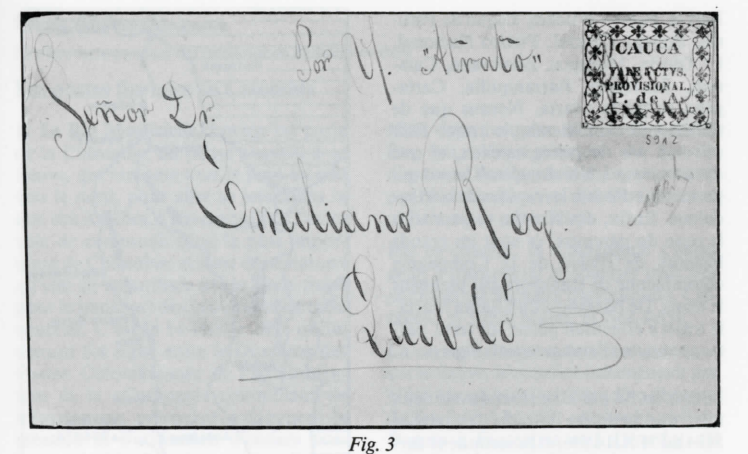 Por V. "Atrato"
Señor Dr.
Emiliano Rey.
Quibdó
CAUCA
VALE 5 CTVS.
PROVISIONAL.
P. de A.
5912
Fig. 3